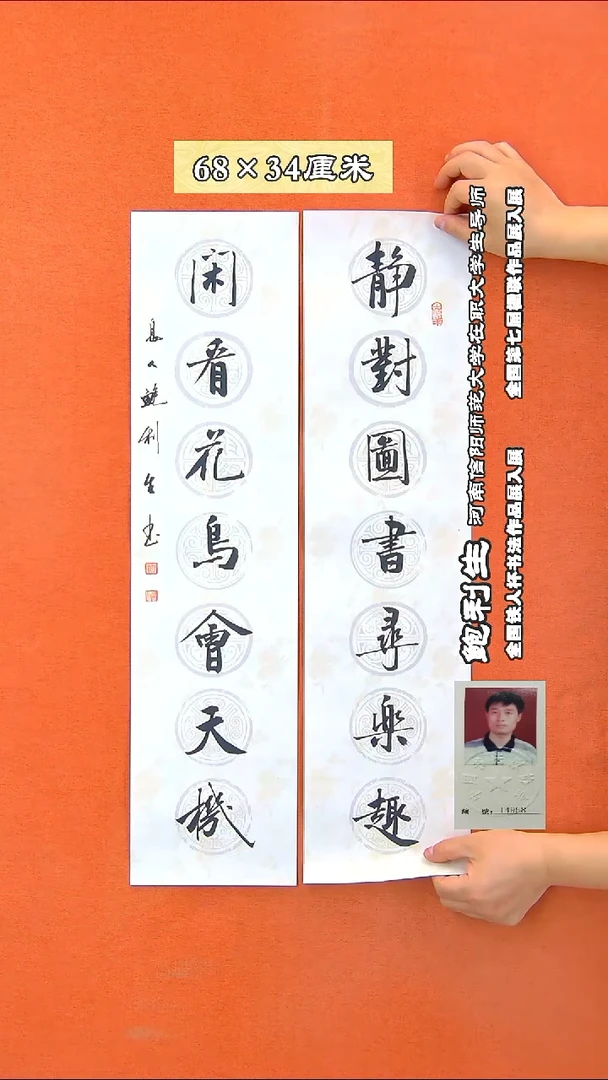 68×34厘米
静對圖書尋樂趣
閑看花鳥會天機
息人鮑利生书
鲍利生 河南信阳师范大学在职大学生导师
全国铁人杯书法作品展入展 全国第七届楹联作品展入展